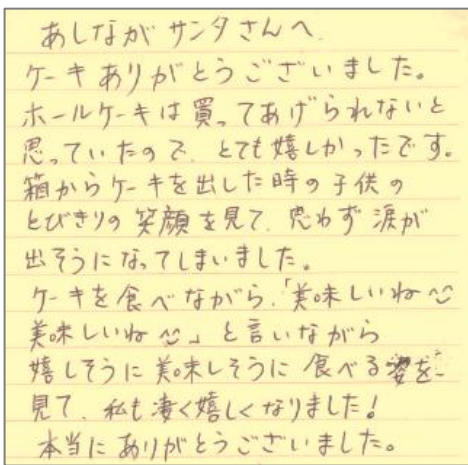 あしながサンタさんへ
ケーキありがとうございました。
ホールケーキは買ってあげられないと
思っていたので、とても嬉しかったです。
箱からケーキを出した時の子供の
とびきりの笑顔を見て、思わず涙が
出そうになってしまいました。
ケーキを食べながら、「美味しいね
美味しいね」と言いながら
嬉しそうに美味しそうに食べる姿を
見て、私も凄く嬉しくなりました!
本当にありがとうございました。